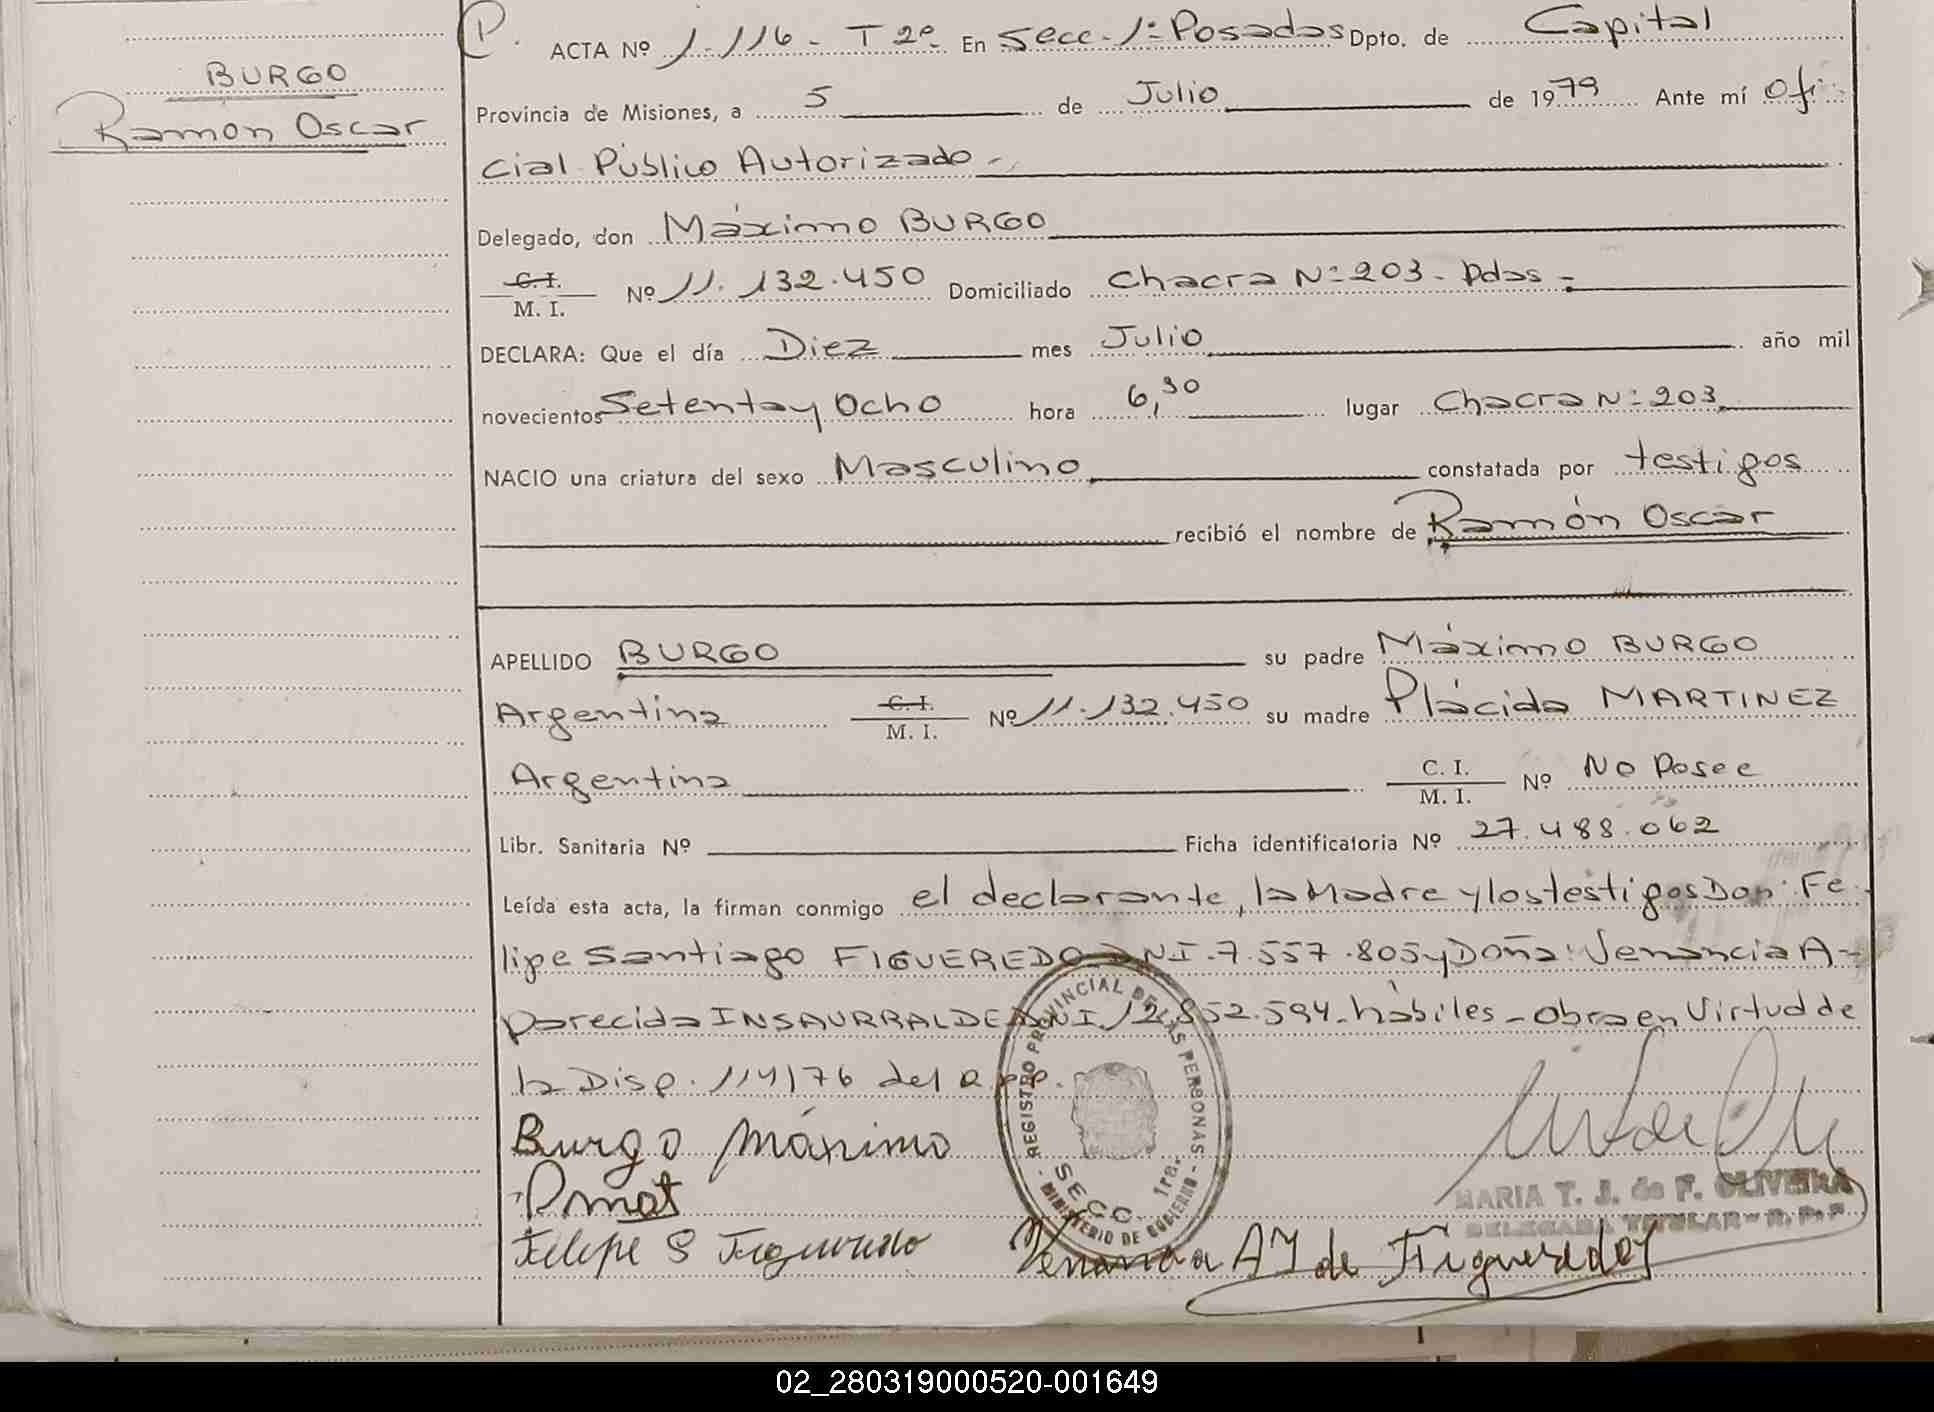 BURGO
Ramón Oscar
P. ACTA Nº 1.116 - T 2º En Secc. 1ª Posadas Dpto. de Capital
Provincia de Misiones, a 5 de Julio de 1979 Ante mí Ofi-
cial Público Autorizado -
Delegado, don Máximo BURGO
C. I. / M. I. Nº 11.132.450 Domiciliado Chacra Nº 203 - Pdas -
DECLARA: Que el día Diez mes Julio año mil
novecientos Setenta y Ocho hora 6,30 lugar Chacra Nº 203
NACIO una criatura del sexo Masculino constatada por testigos
recibió el nombre de Ramón Oscar
APELLIDO BURGO su padre Máximo BURGO
Argentina C. I. / M. I. Nº 11.132.450 su madre Plácida MARTINEZ
Argentina C. I. / M. I. Nº No Posee
Libr. Sanitaria Nº Ficha identificatoria Nº 27.488.062
Leída esta acta, la firman conmigo el declarante, la Madre y los testigos Don: Fe-
lipe Santiago FIGUEREDO DNI. 7.557.805 y Doña: Venancia A-
parecida INSAURRALDE DNI. 12.852.594 - hábiles - Obra en Virtud de
la Disp. 114/76 del R.P.P.
Burgo Máximo
Pmat
Felipe S Figueredo
Venancia A I de Figueredo
REGISTRO PROVINCIAL DE LAS PERSONAS - MINISTERIO DE GOBIERNO -
SECC. 1ra.
MARIA T. J. de F. OLIVEIRA
DELEGADA TITULAR - R. P. P.
02_280319000520-001649